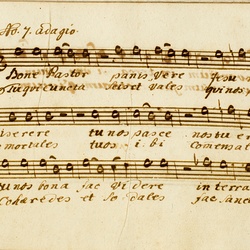 No. 7. Adagio.
Bone Pastor panis vere Jesu
Tu qui cuncta scis et vales qui nos p
iserere tu nos pasce nos tu e
mortales tuos ibi Comensal
tu nos bona fac Videre in terra
Cohæredes et Sodales fac Sanct